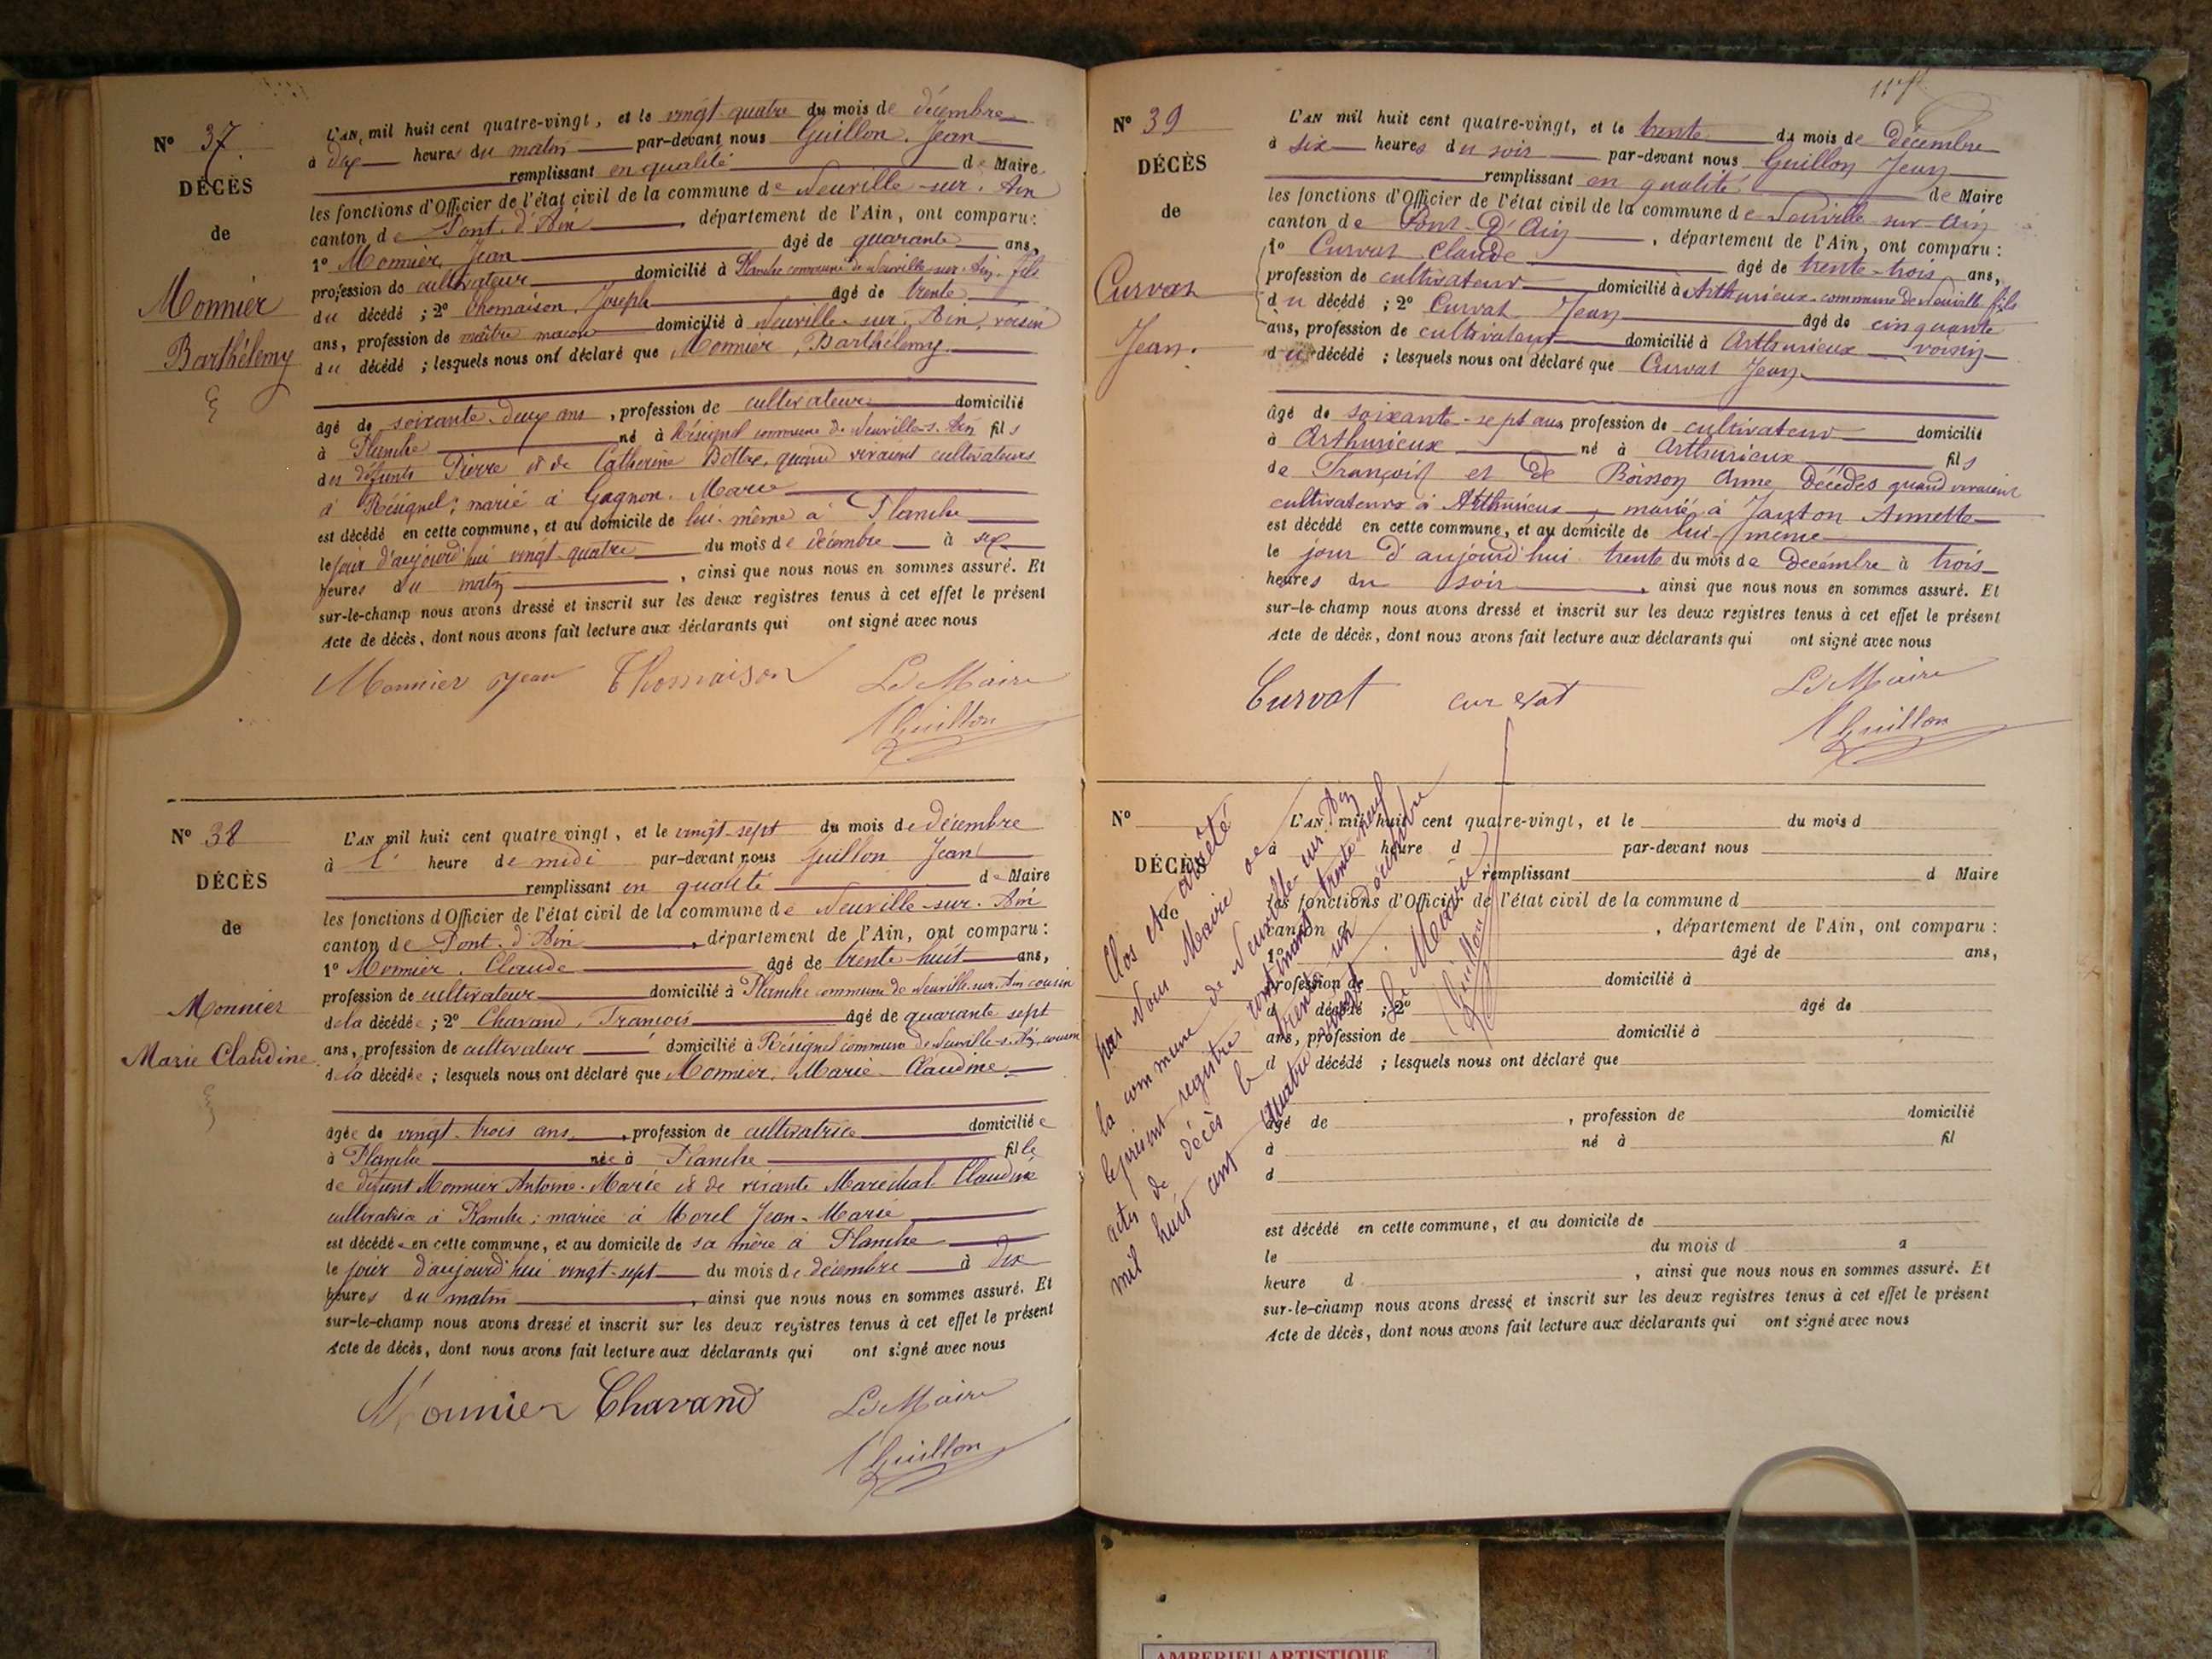 N° 37.
DÉCÈS
de
Monnier
Barthélemy
L'AN, mil huit cent quatre-vingt, et le vingt-quatre du mois de décembre
à dix heures du matin par-devant nous Guillon, Jean
remplissant en qualité de Maire
les fonctions d'Officier de l'état civil de la commune de Neuville-sur-Ain
canton de Pont-d'Ain, département de l'Ain, ont comparu:
1° Monnier, Jean âgé de quarante ans,
profession de cultivateur domicilié à Planche commune de Neuville-sur-Ain, fils
du décédé ; 2° Thomaison, Joseph âgé de trente
ans, profession de maître maçon domicilié à Neuville-sur-Ain, voisin
du décédé ; lesquels nous ont déclaré que Monnier, Barthélemy
âgé de soixante-deux ans, profession de cultivateur domicilié
à Planche né à Résignel commune de Neuville-s-Ain fils
des défunts Pierre et de Catherine quand vivaient cultivateurs
à Résignel ; marié à Gagnon, Marie
est décédé en cette commune, et au domicile de lui-même à Planche
le jour d'aujourd'hui vingt-quatre du mois de décembre à six
heures du matin, ainsi que nous nous en sommes assuré. Et
sur-le-champ nous avons dressé et inscrit sur les deux registres tenus à cet effet le présent
Acte de décès, dont nous avons fait lecture aux déclarants qui ont signé avec nous
Monnier Jean Thomaison Le Maire
Guillon
N° 38
DÉCÈS
de
Monnier
Marie Claudine
L'AN mil huit cent quatre vingt, et le vingt-sept du mois de décembre
à l' heure de midi par-devant nous Guillon Jean
remplissant en qualité de Maire
les fonctions d'Officier de l'état civil de la commune de Neuville-sur-Ain
canton de Pont-d'Ain, département de l'Ain, ont comparu :
1° Monnier, Claude âgé de trente-huit ans,
profession de cultivateur domicilié à Planche commune de Neuville-sur-Ain cousin
de la décédée ; 2° Chavand, François âgé de quarante sept
ans, profession de cultivateur domicilié à Résignel commune de Neuville-s-Ain, cousin
de la décédée ; lesquels nous ont déclaré que Monnier, Marie-Claudine
âgée de vingt-trois ans, profession de cultivatrice domiciliée
à Planche née à Planche fille
de défunt Monnier Antoine-Marie et de vivante Maréchal Claudine
cultivatrice à Planche ; mariée à Morel Jean-Marie
est décédée en cette commune, et au domicile de sa mère à Planche
le jour d'aujourd'hui vingt-sept du mois de décembre à dix
heures du matin, ainsi que nous nous en sommes assuré. Et
sur-le-champ nous avons dressé et inscrit sur les deux registres tenus à cet effet le présent
Acte de décès, dont nous avons fait lecture aux déclarants qui ont signé avec nous
Monnier Chavand Le Maire
Guillon
N° 39
DÉCÈS
de
Curvat
Jean.
L'AN mil huit cent quatre-vingt, et le trente du mois de décembre
à six heures du soir par-devant nous Guillon Jean
remplissant en qualité de Maire
les fonctions d'Officier de l'état civil de la commune de Neuville-sur-Ain
canton de Pont-d'Ain, département de l'Ain, ont comparu :
1° Curvat Claude âgé de trente-trois ans,
profession de cultivateur domicilié à Arthurieux commune de Neuville fils
du décédé ; 2° Curvat Jean âgé de cinquante
ans, profession de cultivateur domicilié à Arthurieux voisin
du décédé ; lesquels nous ont déclaré que Curvat Jean
âgé de soixante-sept ans profession de cultivateur domicilié
à Arthurieux né à Arthurieux fils
de François et de Boisson Anne décédés quand vivaient
cultivateurs à Arthurieux, marié à Janton Annette
est décédé en cette commune, et au domicile de lui-même
le jour d'aujourd'hui trente du mois de décembre à trois
heures du soir, ainsi que nous nous en sommes assuré. Et
sur-le-champ nous avons dressé et inscrit sur les deux registres tenus à cet effet le présent
Acte de décès, dont nous avons fait lecture aux déclarants qui ont signé avec nous
Curvat curvat Le Maire
Guillon
N°
DÉCÈS
de
L'AN mil huit cent quatre-vingt, et le du mois d
à heure d par-devant nous
remplissant d Maire
les fonctions d'Officier de l'état civil de la commune d
canton d , département de l'Ain, ont comparu :
1° âgé de ans,
profession de domicilié à
d décédé ; 2° âgé de
ans, profession de domicilié à
d décédé ; lesquels nous ont déclaré que
âgé de , profession de domicilié
à né à fil
d
est décédé en cette commune, et au domicile de
le du mois d à
heure d , ainsi que nous nous en sommes assuré. Et
sur-le-champ nous avons dressé et inscrit sur les deux registres tenus à cet effet le présent
Acte de décès, dont nous avons fait lecture aux déclarants qui ont signé avec nous
Clos et arrêté
par Nous Maire de
la commune de Neuville-sur-Ain
le présent registre contenant trente-neuf
actes de décès le trente-un décembre
mil huit cent quatre vingt
Le Maire
Guillon
AMBERIEU ARTISTIQUE